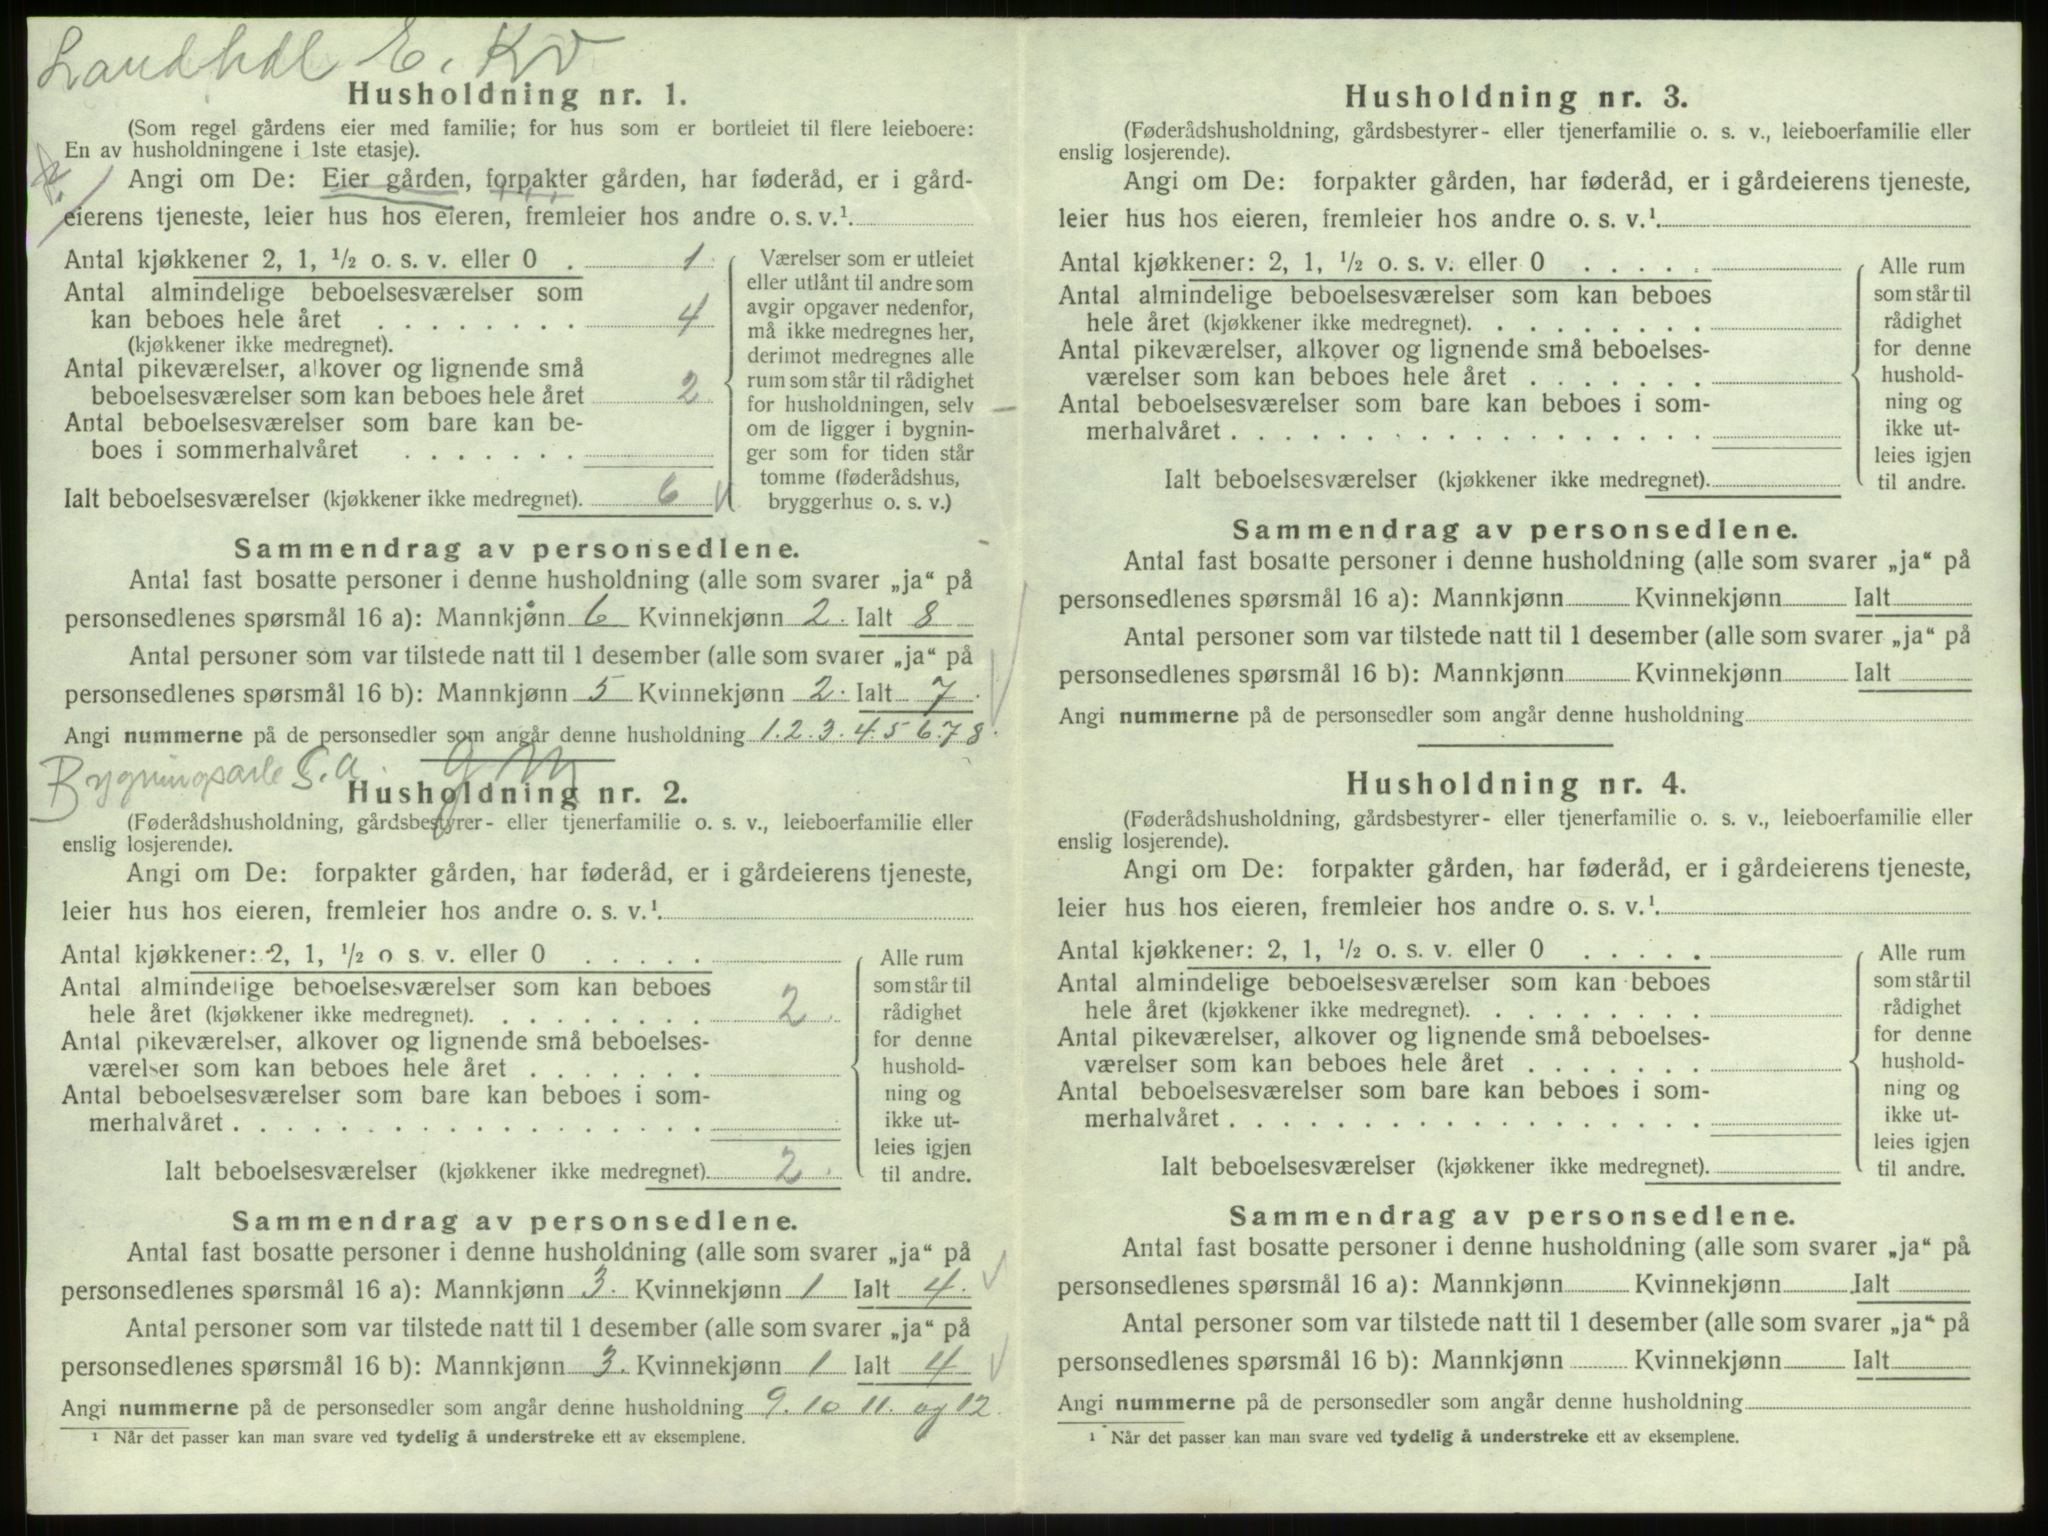 Landhdl E. Kv
Husholdning nr. 1.
(Som regel gårdens eier med familie; for hus som er bortleiet til flere leieboere:
En av husholdningene i 1ste etasje).
Angi om De: Eier gården, forpakter gården, har føderåd, er i gård-
eierens tjeneste, leier hus hos eieren, fremleier hos andre o. s. v.¹
Antal kjøkkener 2, 1, ½ o. s. v. eller 0 . 1
Antal almindelige beboelsesværelser som
kan beboes hele året . . . . . . . . 4
(kjøkkener ikke medregnet).
Antal pikeværelser, alkover og lignende små
beboelsesværelser som kan beboes hele året 2
Antal beboelsesværelser som bare kan be-
boes i sommerhalvåret . . . . . . .
Ialt beboelsesværelser (kjøkkener ikke medregnet). 6
Værelser som er utleiet
eller utlånt til andre som
avgir opgaver nedenfor,
må ikke medregnes her,
derimot medregnes alle
rum som står til rådighet
for husholdningen, selv
om de ligger i bygnin-
ger som for tiden står
tomme (føderådshus,
bryggerhus o. s. v.)
Sammendrag av personsedlene.
Antal fast bosatte personer i denne husholdning (alle som svarer „ja“ på
personsedlenes spørsmål 16 a): Mannkjønn 6 Kvinnekjønn 2. Ialt 8
Antal personer som var tilstede natt til 1 desember (alle som svarer „ja“ på
personsedlenes spørsmål 16 b): Mannkjønn 5 Kvinnekjønn 2. Ialt 7.
Angi nummerne på de personsedler som angår denne husholdning 1.2.3.4.5 6.7 8.
Bygningsarb S.a.
Husholdning nr. 2.
(Føderådshusholdning, gårdsbestyrer- eller tjenerfamilie o. s. v., leieboerfamilie eller
enslig losjerende).
Angi om De: forpakter gården, har føderåd, er i gårdeierens tjeneste,
leier hus hos eieren, fremleier hos andre o. s. v.¹
Antal kjøkkener: 2, 1, ½ o s. v. eller 0 . . . . .
Antal almindelige beboelsesværelser som kan beboes
hele året (kjøkkener ikke medregnet). . . . . . . . . 2
Antal pikeværelser, alkover og lignende små beboelses-
værelser som kan beboes hele året . . . . . . .
Antal beboelsesværelser som bare kan beboes i som-
merhalvåret . . . . . . . . . . . . . . . . . .
Ialt beboelsesværelser (kjøkkener ikke medregnet). 2.
Alle rum
som står til
rådighet
for denne
hushold-
ning og
ikke ut-
leies igjen
til andre.
Sammendrag av personsedlene.
Antal fast bosatte personer i denne husholdning (alle som svarer „ja“ på
personsedlenes spørsmål 16 a): Mannkjønn 3. Kvinnekjønn 1 Ialt 4.
Antal personer som var tilstede natt til 1 desember (alle som svarer „ja“ på
personsedlenes spørsmål 16 b): Mannkjønn 3. Kvinnekjønn 1 Ialt 4
Angi nummerne på de personsedler som angår denne husholdning 9.10 11. og 12.
¹ Når det passer kan man svare ved tydelig å understreke ett av eksemplene.
Husholdning nr. 3.
(Føderådshusholdning, gårdsbestyrer- eller tjenerfamilie o. s. v., leieboerfamilie eller
enslig losjerende).
Angi om De: forpakter gården, har føderåd, er i gårdeierens tjeneste,
leier hus hos eieren, fremleier hos andre o. s. v.¹
Antal kjøkkener: 2, 1, ½ o. s. v. eller 0 . . . . .
Antal almindelige beboelsesværelser som kan beboes
hele året (kjøkkener ikke medregnet). . . . . . . . .
Antal pikeværelser, alkover og lignende små beboelses-
værelser som kan beboes hele året . . . . . . .
Antal beboelsesværelser som bare kan beboes i som-
merhalvåret . . . . . . . . . . . . . . . . . .
Ialt beboelsesværelser (kjøkkener ikke medregnet).
Alle rum
som står til
rådighet
for denne
hushold-
ning og
ikke ut-
leies igjen
til andre.
Sammendrag av personsedlene.
Antal fast bosatte personer i denne husholdning (alle som svarer „ja“ på
personsedlenes spørsmål 16 a): Mannkjønn Kvinnekjønn Ialt
Antal personer som var tilstede natt til 1 desember (alle som svarer „ja“ på
personsedlenes spørsmål 16 b): Mannkjønn Kvinnekjønn Ialt
Angi nummerne på de personsedler som angår denne husholdning
Husholdning nr. 4.
(Føderådshusholdning, gårdsbestyrer- eller tjenerfamilie o. s. v., leieboerfamilie eller
enslig losjerende).
Angi om De: forpakter gården, har føderåd, er i gårdeierens tjeneste,
leier hus hos eieren, fremleier hos andre o. s. v.¹
Antal kjøkkener: 2, 1, ½ o. s. v. eller 0 . . . . .
Antal almindelige beboelsesværelser som kan beboes
hele året (kjøkkener ikke medregnet). . . . . . . . .
Antal pikeværelser, alkover og lignende små beboelses-
værelser som kan beboes hele året . . . . . . .
Antal beboelsesværelser som bare kan beboes i som-
merhalvåret . . . . . . . . . . . . . . . . . .
Ialt beboelsesværelser (kjøkkener ikke medregnet).
Alle rum
som står til
rådighet
for denne
hushold-
ning og
ikke ut-
leies igjen
til andre.
Sammendrag av personsedlene.
Antal fast bosatte personer i denne husholdning (alle som svarer „ja“ på
personsedlenes spørsmål 16 a): Mannkjønn Kvinnekjønn Ialt
Antal personer som var tilstede natt til 1 desember (alle som svarer „ja“ på
personsedlenes spørsmål 16 b): Mannkjønn Kvinnekjønn Ialt
Angi nummerne på de personsedler som angår denne husholdning
¹ Når det passer kan man svare ved tydelig å understreke ett av eksemplene.